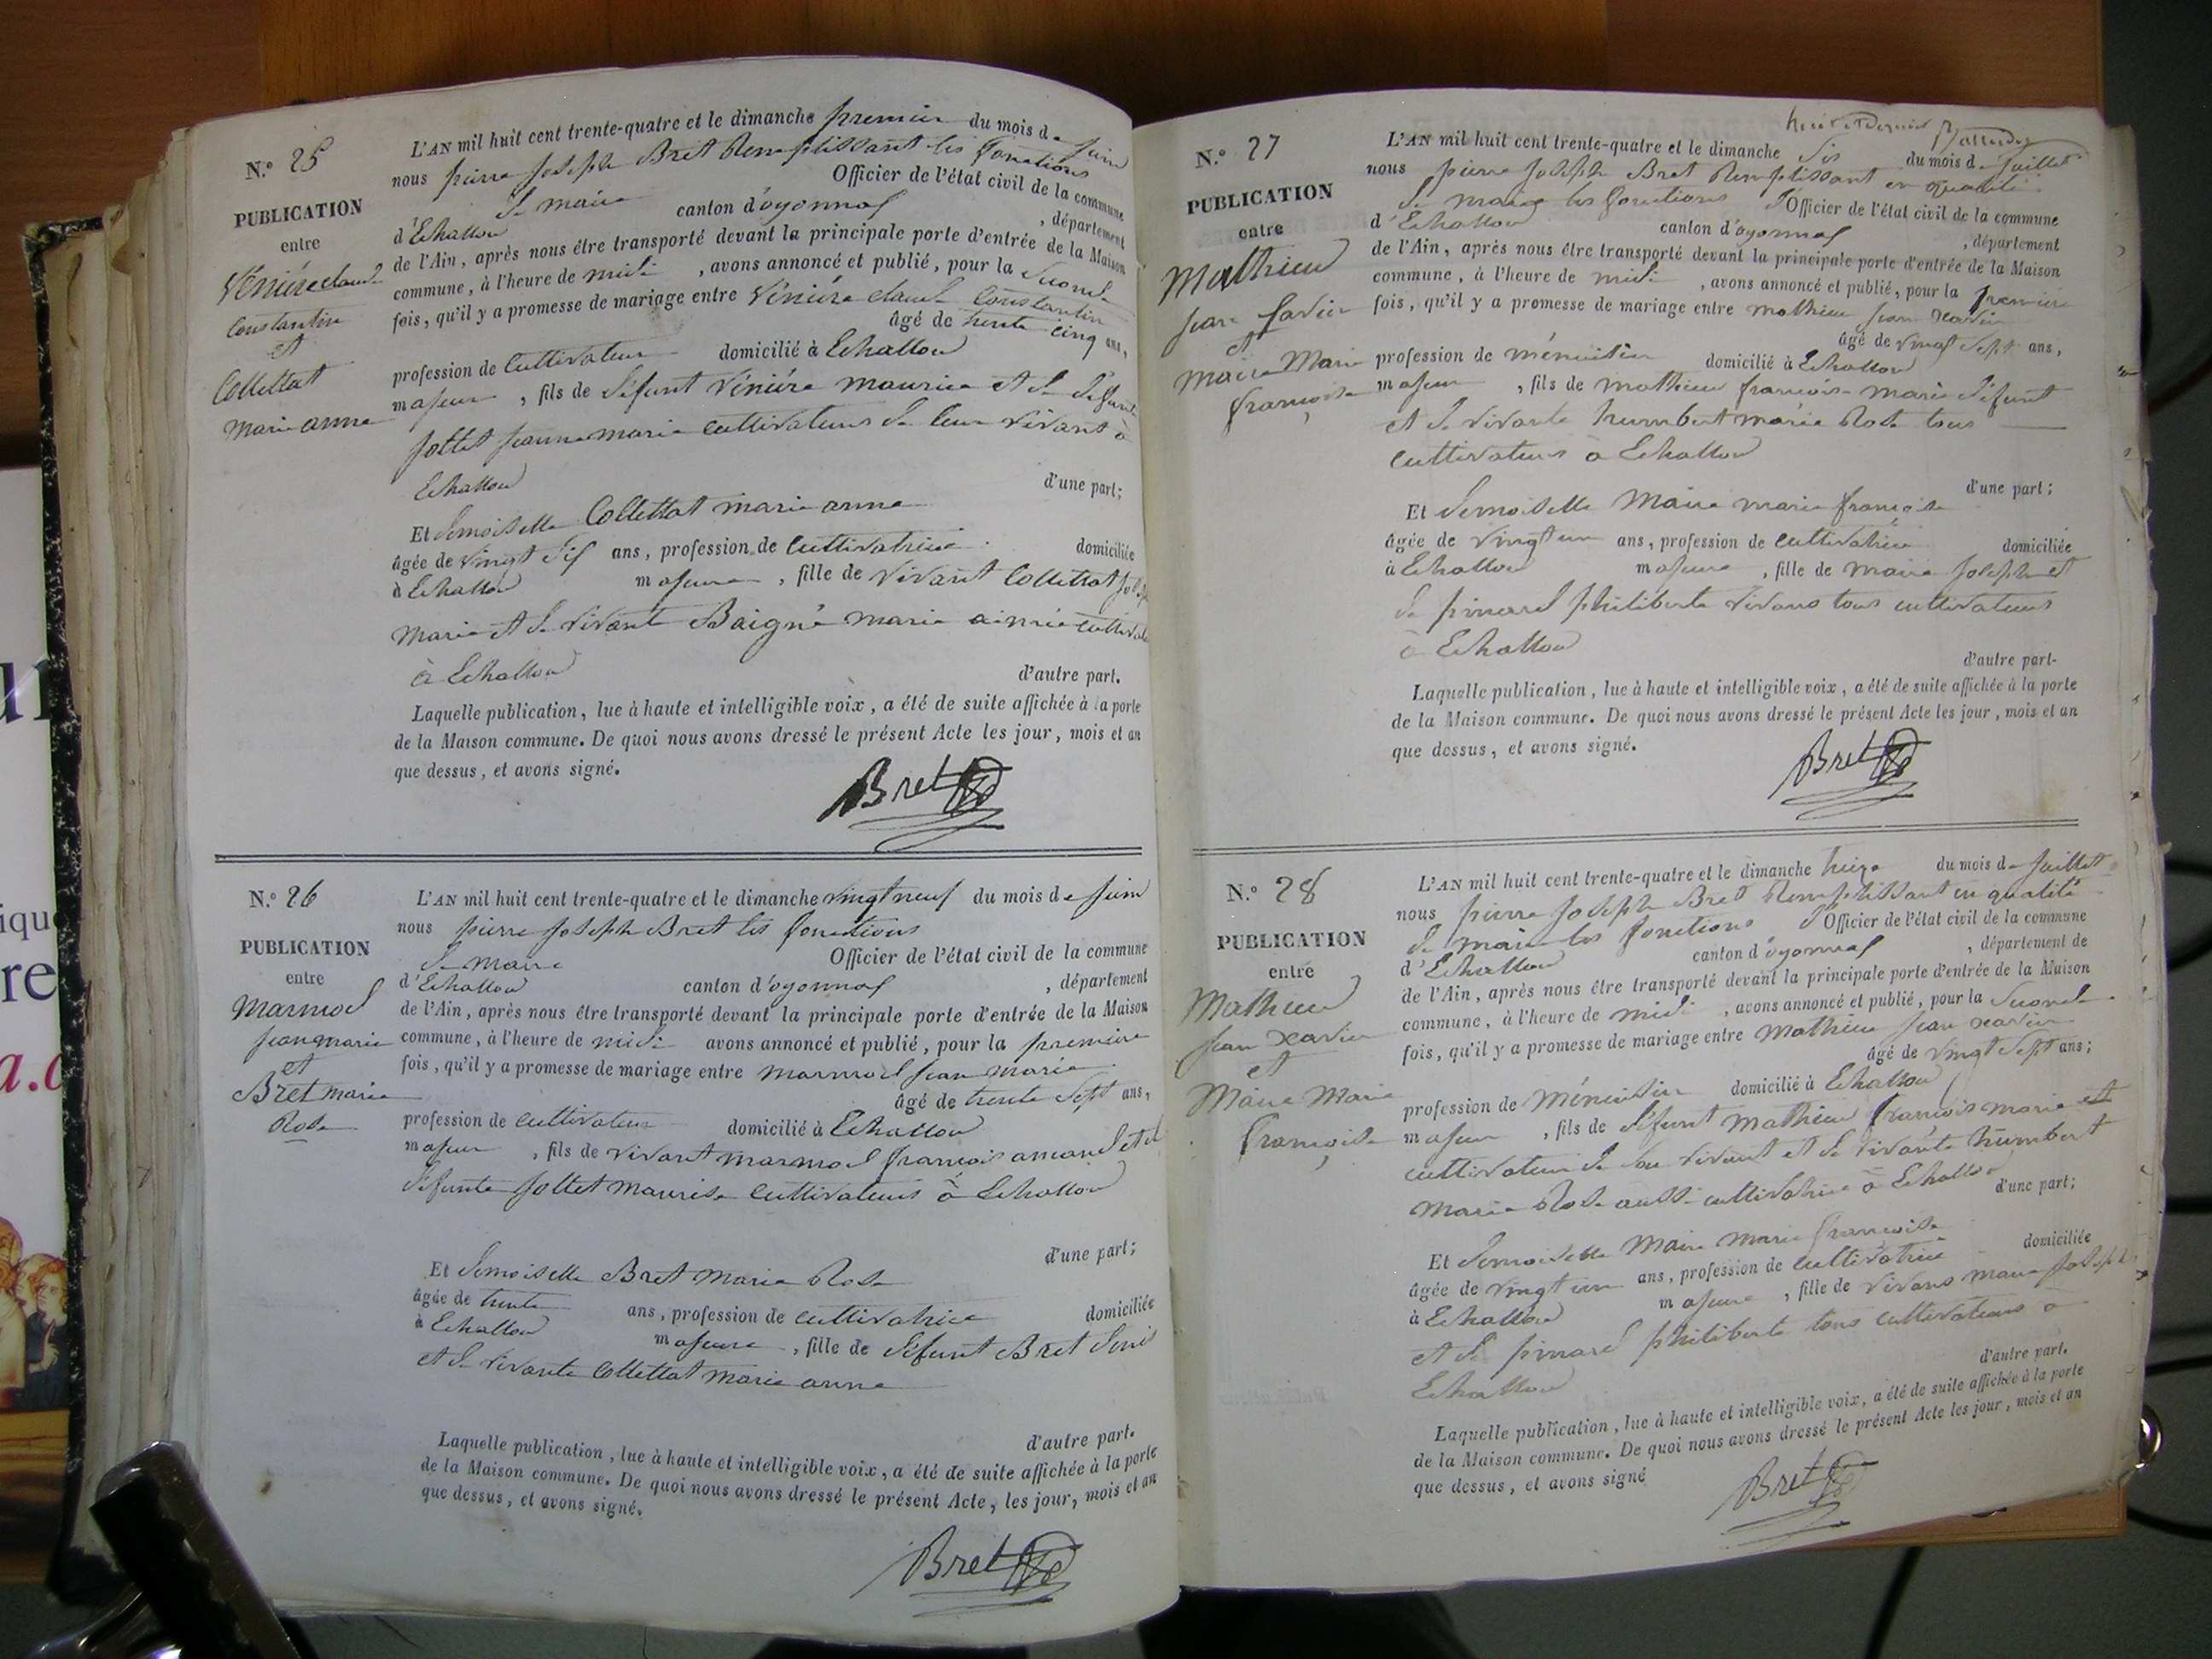 N.º 25
PUBLICATION
entre
Vénière claude
Constantin
et
Collettat
marie anne
L'AN mil huit cent trente-quatre et le dimanche premier du mois de juin
nous pierre joseph Bret Remplissant les fonctions
de maire Officier de l'état civil de la commune
d'Echallon canton d'oyonnax , département
de l'Ain, après nous être transporté devant la principale porte d'entrée de la Maison
commune, à l'heure de midi , avons annoncé et publié, pour la seconde
fois, qu'il y a promesse de mariage entre Vénière claude Constantin
âgé de trente cinq ans,
profession de Cultivateur domicilié à Echallon
majeur , fils de défunt Vénière maurice et de défunte
jottet jeanne marie cultivateurs de leur vivant à
Echallon d'une part;
Et demoiselle Collettat marie anne
âgée de vingt six ans, profession de Cultivatrice domiciliée
à Echallon majeure , fille de vivant Collettat joseph
Marie et de vivante Baigné marie aimée cultivat
à Echallon d'autre part.
Laquelle publication, lue à haute et intelligible voix, a été de suite affichée à la porte
de la Maison commune. De quoi nous avons dressé le présent Acte les jour, mois et an
que dessus, et avons signé.
Bret
N.º 26
PUBLICATION
entre
Marmod
jean marie
et
Bret marie
Rose
L'AN mil huit cent trente-quatre et le dimanche vingt neuf du mois de juin
nous pierre joseph Bret les fonctions
de maire Officier de l'état civil de la commune
d'Echallon canton d'oyonnax , département
de l'Ain, après nous être transporté devant la principale porte d'entrée de la Maison
commune, à l'heure de midi avons annoncé et publié, pour la première
fois, qu'il y a promesse de mariage entre marmod jean marie
âgé de trente sept ans,
profession de cultivateur domicilié à Echallon
majeur , fils de vivant marmod françois amand et de
défunte jottet maurise cultivateurs à Echallon
d'une part;
Et demoiselle Bret marie Rose
âgée de trente ans, profession de cultivatrice domiciliée
à Echallon majeure , fille de défunt Bret denis
et de vivante Collettat marie anne
d'autre part.
Laquelle publication, lue à haute et intelligible voix, a été de suite affichée à la porte
de la Maison commune. De quoi nous avons dressé le présent Acte, les jour, mois et an
que dessus, et avons signé.
Bret
N.º 27
PUBLICATION
entre
Mathieu
jean xavier
et
Maire Marie
françoise
L'AN mil huit cent trente-quatre et le dimanche six du mois de juillet
nous pierre joseph Bret Remplissant en qualité
de maire les fonctions d'Officier de l'état civil de la commune
d'Echallon canton d'oyonnax , département
de l'Ain, après nous être transporté devant la principale porte d'entrée de la Maison
commune, à l'heure de midi , avons annoncé et publié, pour la premiere
fois, qu'il y a promesse de mariage entre mathieu jean xavier
âgé de vingt sept ans,
profession de ménuisier domicilié à Echallon
majeur , fils de mathieu françois marie défunt
et de vivante humbert marie Rose tous
cultivateurs à Echallon
d'une part;
Et demoiselle Maire marie françoise
âgée de vingt un ans, profession de cultivatrice domiciliée
à Echallon majeure , fille de maire joseph et
de pinard philiberte vivans tous cultivateurs
à Echallon
d'autre part-
Laquelle publication, lue à haute et intelligible voix, a été de suite affichée à la porte
de la Maison commune. De quoi nous avons dressé le présent Acte les jour, mois et an
que dessus, et avons signé.
Bret
N.º 28
PUBLICATION
entre
Mathieu
jean xavier
et
Maire Marie
françoise
L'AN mil huit cent trente-quatre et le dimanche treize du mois de juillet
nous pierre joseph Bret Remplissant en qualité
de maire les fonctions d'Officier de l'état civil de la commune
d'Echallon canton d'oyonnax , département de
de l'Ain, après nous être transporté devant la principale porte d'entrée de la Maison
commune, à l'heure de midi , avons annoncé et publié, pour la seconde
fois, qu'il y a promesse de mariage entre mathieu jean xavier
âgé de vingt sept ans;
profession de ménuisier domicilié à Echallon
majeur , fils de défunt mathieu françois marie et
cultivateur de son vivant et de vivante humbert
marie Rose aussi cultivatrice à Echallon d'une part;
Et demoiselle Maire marie francoise
âgée de vingt un ans, profession de cultivatrice domiciliée
à Echallon majeure , fille de vivans maire joseph
et de pinard philiberte tous cultivateurs à
Echallon d'autre part.
Laquelle publication, lue à haute et intelligible voix, a été de suite affichée à la porte
de la Maison commune. De quoi nous avons dressé le présent Acte les jour, mois et an
que dessus, et avons signé
Bret